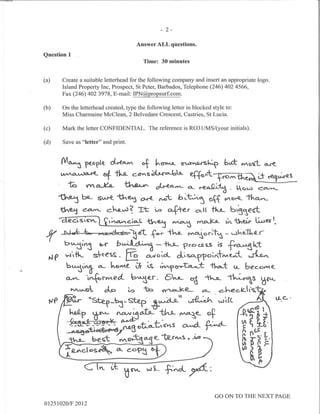 - 2-
Answer ALL questions.
Question 1
Time: 30 minutes
(a) Create a suitable letterhead for the following company and insert an appropriate logo.
Island Property Inc, Prospect, St Peter, Barbados, Telephone (246) 402 4566,
Fax (246) 402 3978, E-mail: IPN@propsurf.com.
(b) On the letterhead created, type the following letter in blocked style to:
Miss Charmaine McClean, 2 Belvedere Crescent, Castries, St Lucia.
(c) Mark the letter CONFIDENTIAL. The reference is RO1/MS/(your initials).
(d) Save as "letter" and print.
Many people dream of home ownership but most are
unaware of the considerable effort from them it requires
to make their dream a reality. How can
they be sure they are not biting off more than
they can chew? It is after all the biggest
decision financial they may make in their lives!
yet for the majority - whether
buying or building - the process is fraught
NP with stress. To avoid disappointment when
buying a home it is important that u become
an informed buyer. One of the things you
must do is to make a checklist.
NP Our "Step-by-Step guide" which will u.c.
help you navigate the
negotiations and find
the best mortgage terms. is
Enclosed a copy of
In it you will find
GO ON TO THE NEXT PAGE
01251020/F 2012